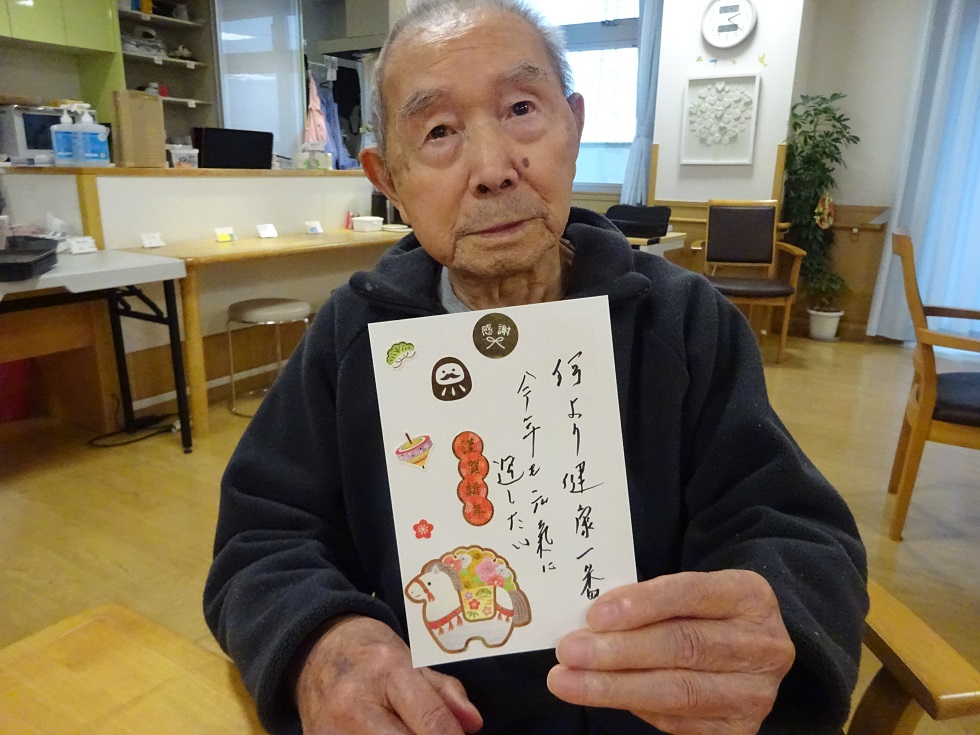 感謝
何より健康一番
今年も元氣に
過したい
謹賀新年